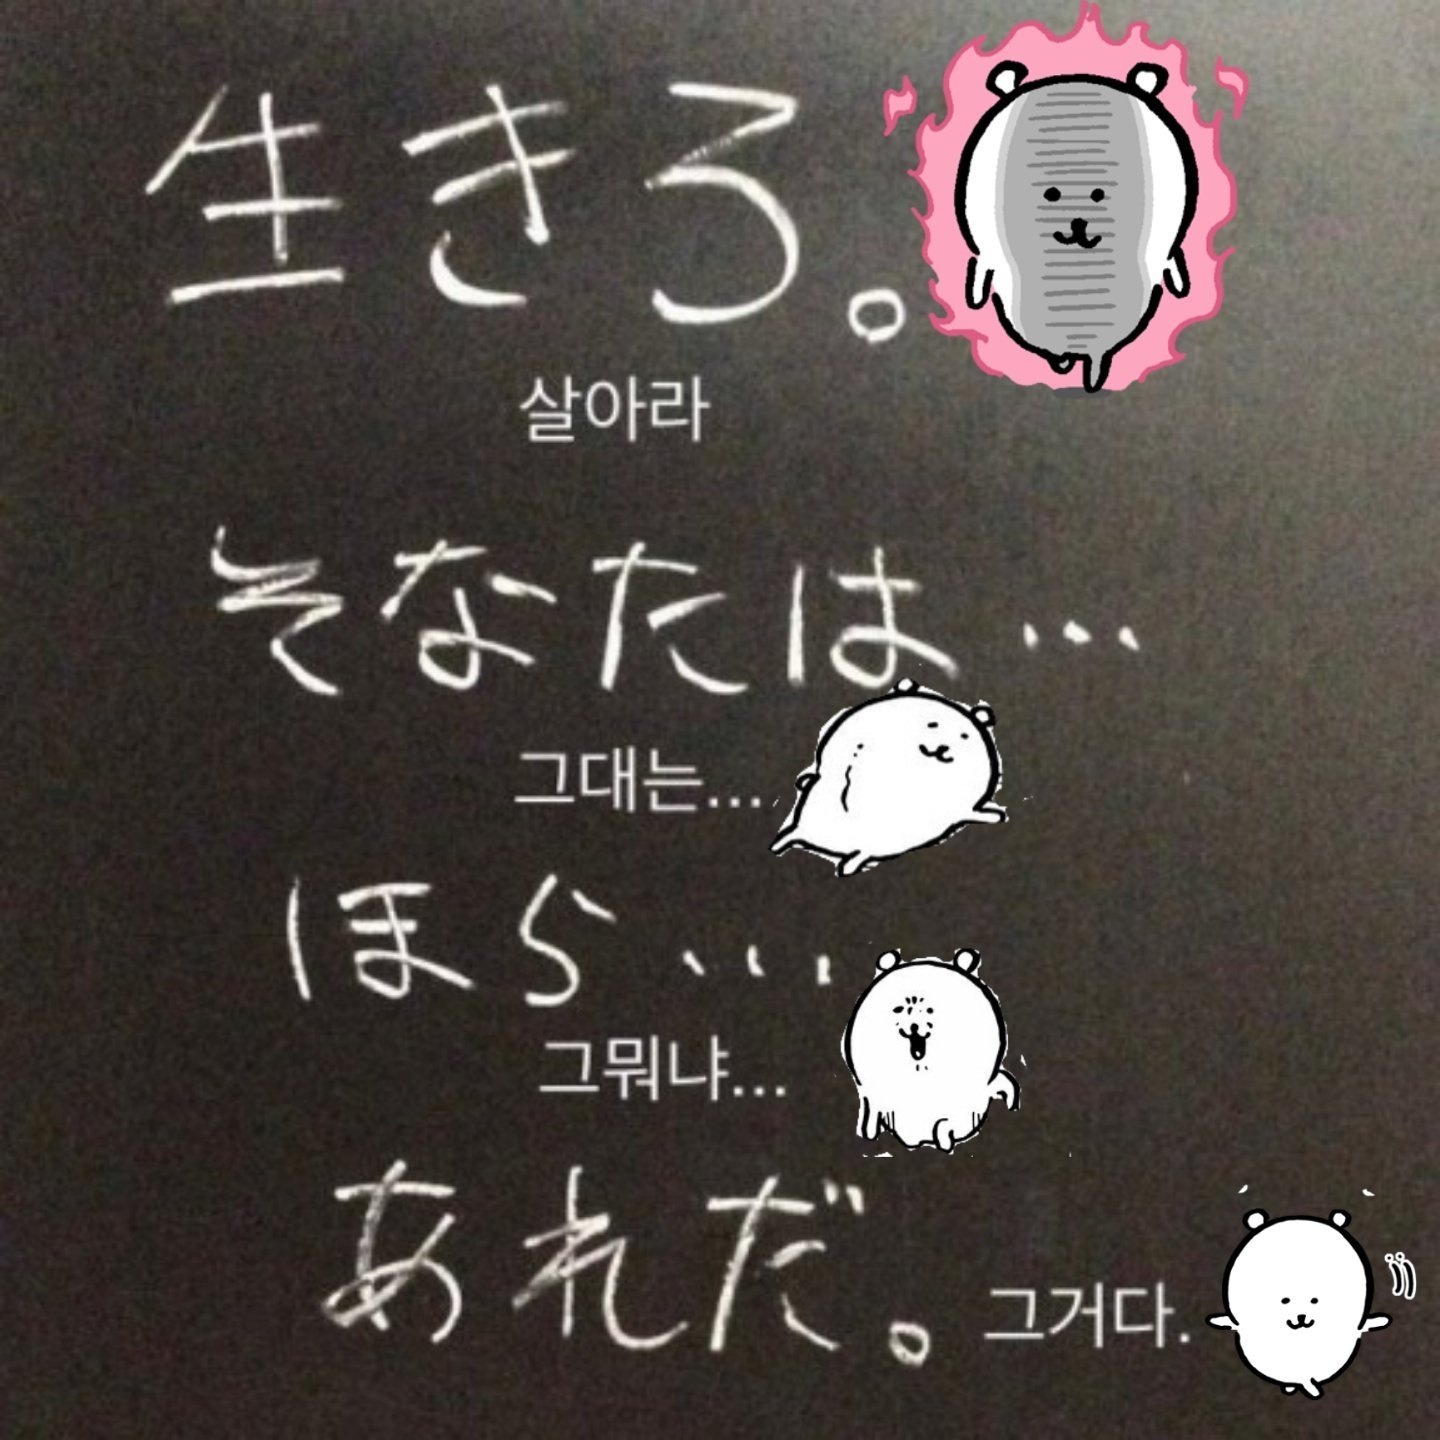 生きろ。
살아라
そなたは…
그대는...
ほら…
그뭐냐...
あれだ。 그거다.